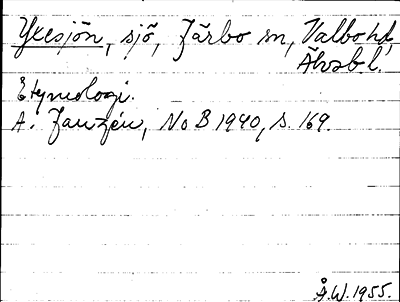 Yxesjön, sjö, Färbo sn, Valbo hd,
Älvsb. l.
Etymologi.
A. Janzén, NoB 1940, s. 169.
G.W. 1955.